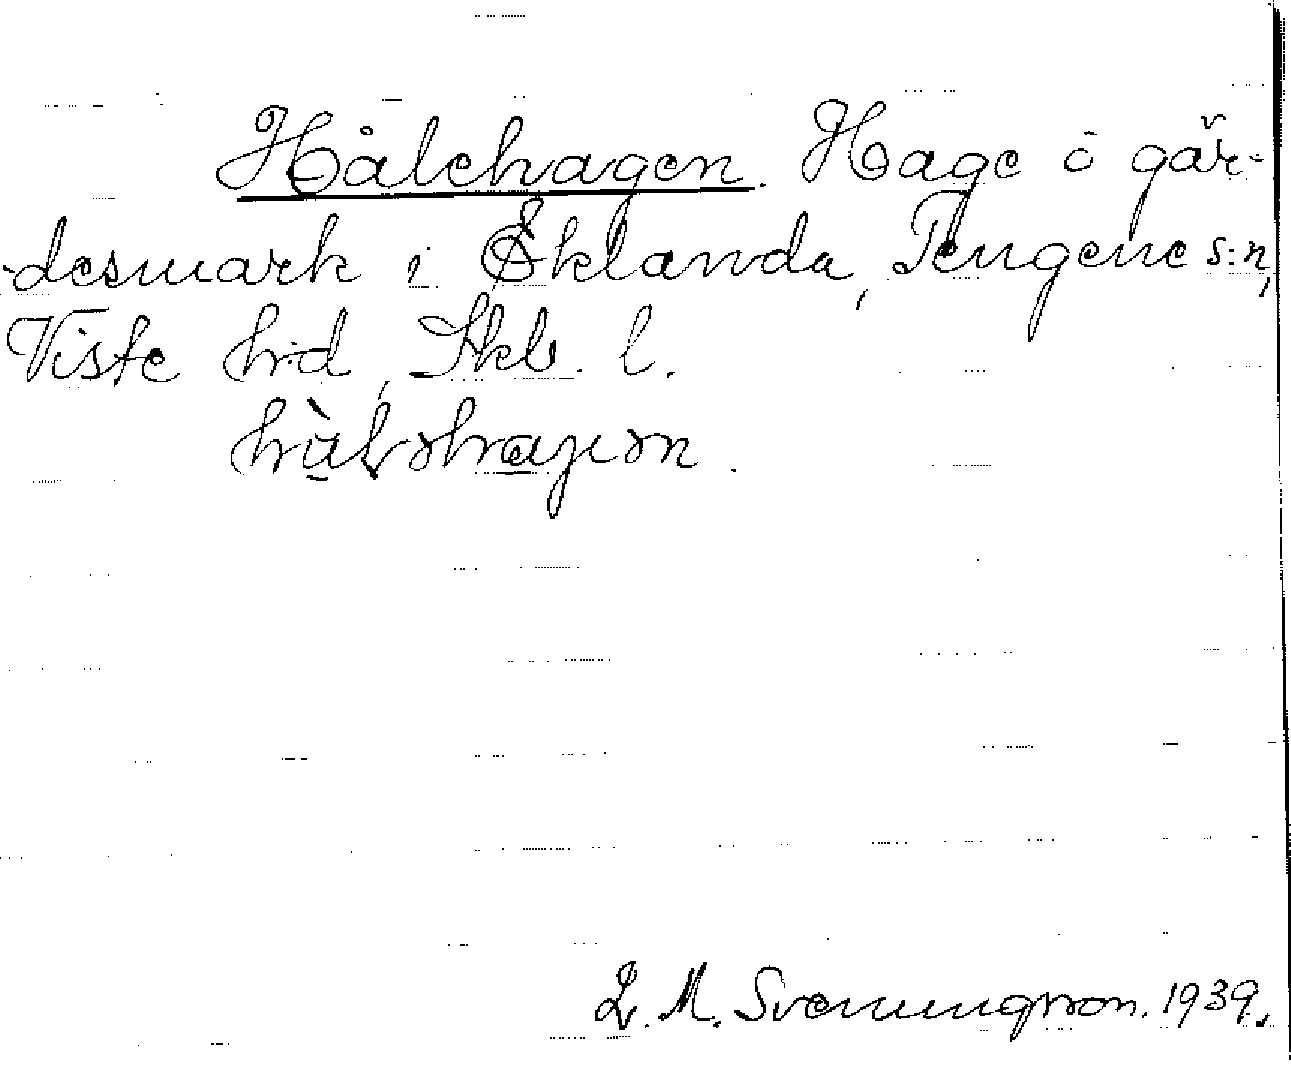 Hålehagen. Hage o gär-
desmark i Eklanda, Tengene s:n,
Viste hd, Skb. l.
L. M. Svenungsson. 1939.